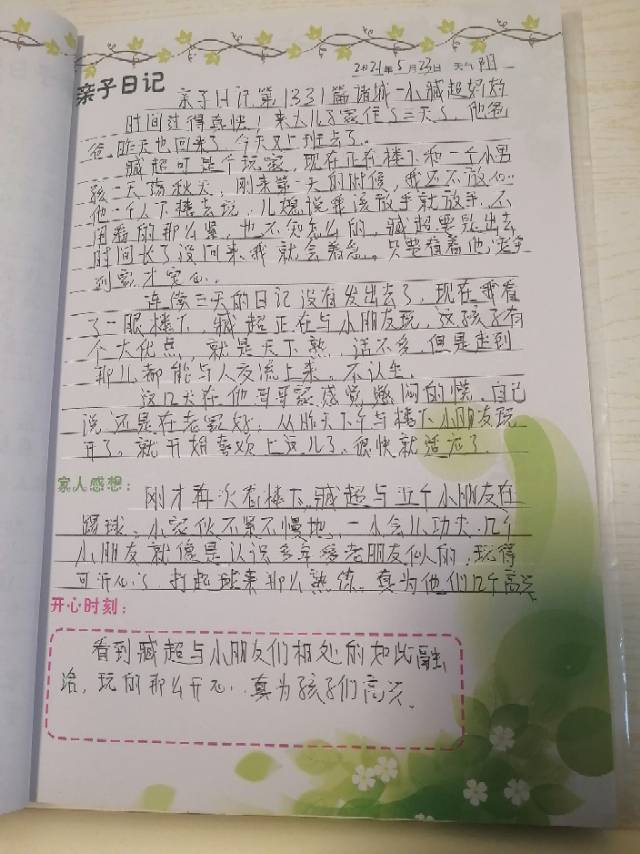 2021年5月23日 天气 阴
亲子日记
亲子日记第1331篇诸城一小臧超奶奶
时间过得真快！来大儿子家住了三天了，他爸
爸昨天也回来了，今天又上班去了。
臧超可是个玩家，现在正在楼下和一个小男
孩一天荡秋天，刚来第一天的时候，我还不放心
他一个人下楼去玩，儿媳说我该放手就放手，不
用看的那么紧，也不知怎么的，臧超要是出去
时间长了没回来，我就会着急。只要看着他
到家才安心。
连续三天的日记没有发出去了，现在我看
了一眼楼下，臧超正在与小朋友玩，这孩子有
个大优点，就是天下熟，话不多，但是走到
那儿都能与人交流上来，不认生。
这几天在他哥哥家感觉 闷的慌，自己
说还是在老家好，从昨天下午与楼下小朋友玩
开了，就开始喜欢上这儿了，很快就适应了。
家人感想：
刚才再次看楼下，臧超与五个小朋友在
踢球，小家伙不紧不慢地，一小会儿功夫，几个
小朋友就像是认识多年 老朋友似的，玩得
可开心了，打起球来那么熟练，真为他们几个高兴
开心时刻：
看到臧超与小朋友们相处的如此融
洽，玩的那么开心，真为孩子们高兴。